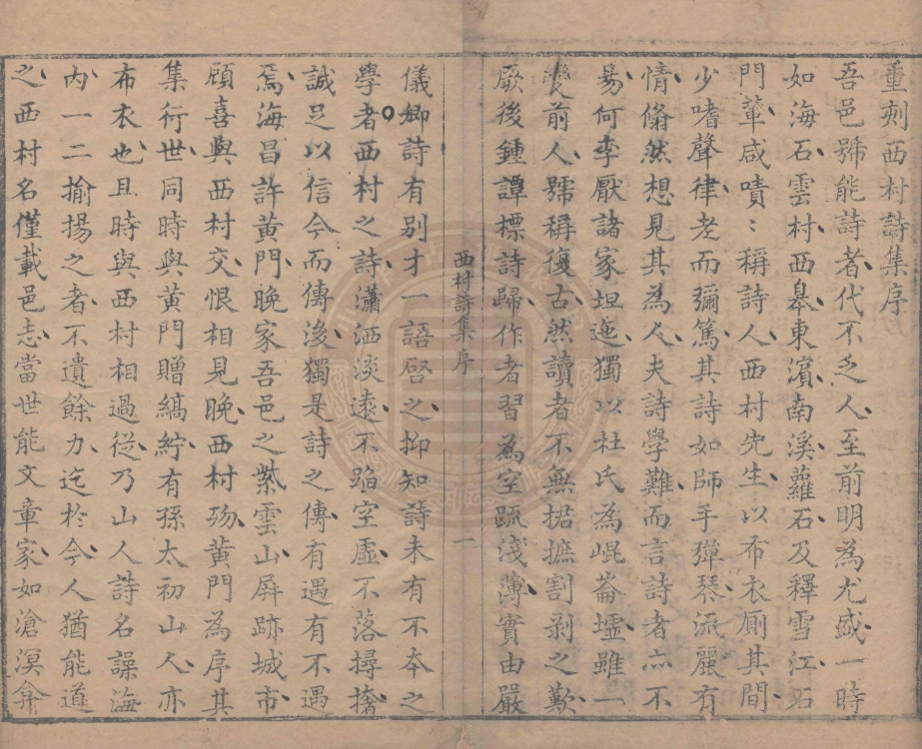 重刻西村詩集序
吾邑號能詩者代不乏人至前明為尤盛一時
如海石雲村西皋東濱南溪蘿石及釋雪江石
門軰咸嘖〻稱詩人西村先生以布衣厠其間
少嗜聲律老而彌篤其詩如師手彈琴派麗有
情翛然想見其為人夫詩學難而言詩者亦不
易何李厭諸家坦迤獨以杜氏為崐崙墟雖一
變前人號稱復古然讀者不無捃摭割剥之歎
厥後鍾譚標詩歸作者習為空疏淺薄實由嚴
西村詩集序
一
儀卿詩有别才一語啓之抑知詩未有不本之
學者西村之詩瀟洒淡遠不蹈空虛不落撏撦
誠足以信今而傳後獨是詩之傳有遇有不遇
焉海昌許黃門晚家吾邑之紫雲山屏跡城市
頋喜與西村交恨相見晚西村歿黃門為序其
集行世同時與黃門贈縞紵有孫太初山人亦
布衣也且時與西村相過從乃山人詩名譟海
內一二揄揚之者不遺餘力迄於今人猶能道
之西村名僅載邑志當世能文章家如滄溟弇